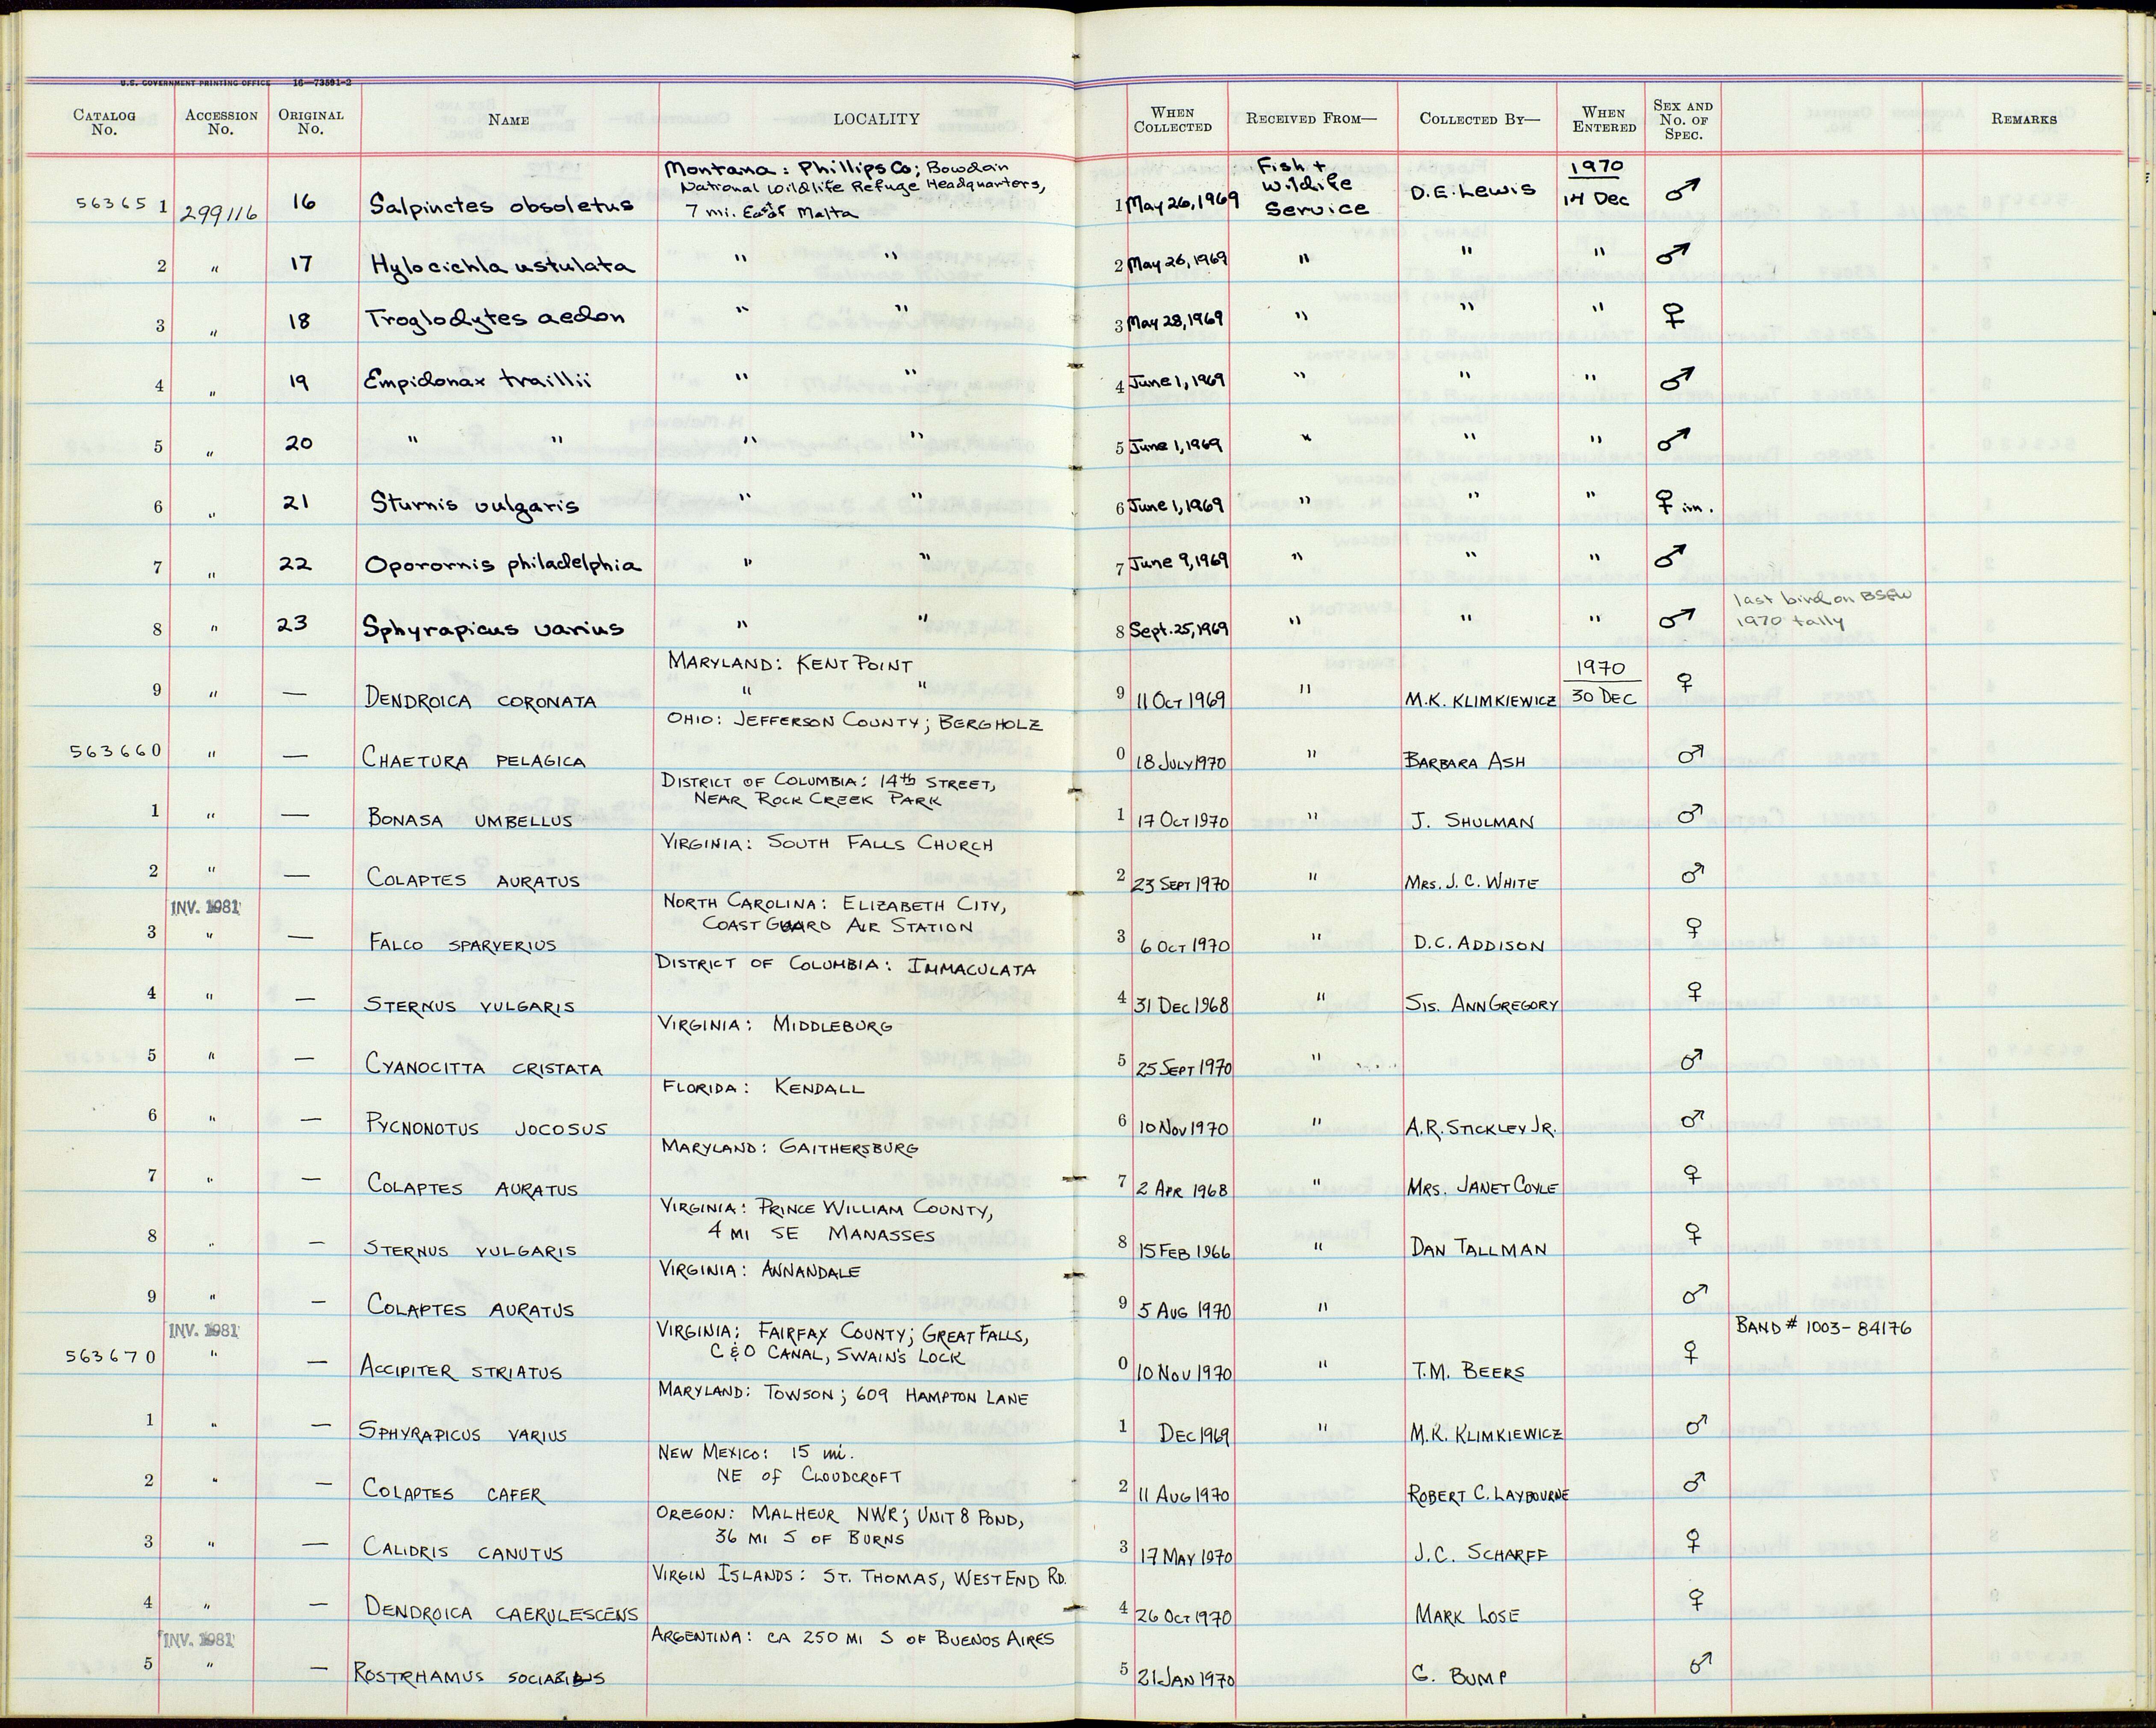 U.S. GOVERNMENT PRINTING OFFICE 16—73591-2
CATALOG No. ACCESSION No. ORIGINAL No. NAME LOCALITY WHEN COLLECTED RECEIVED FROM— COLLECTED BY— WHEN ENTERED SEX AND No. OF SPEC. REMARKS
Montana: Phillips Co; Bowdoin Fish + 1970
National Wildlife Refuge Headquarters, Wildlife
563651 299116 16 Salpinctes obsoletus 7 mi. East of Malta 1 May 26, 1969 Service D.E. Lewis 14 Dec ♂
2 " 17 Hylocichla ustulata " " 2 May 26, 1969 " " " ♂
3 " 18 Troglodytes aedon " " 3 May 28, 1969 " " " ♀
4 " 19 Empidonax traillii " " 4 June 1, 1969 " " " ♂
5 " 20 " " " " 5 June 1, 1969 " " " ♂
6 " 21 Sturnis vulgaris " " 6 June 1, 1969 " " " ♀ im.
7 " 22 Oporornis philadelphia " " 7 June 9, 1969 " " " ♂
last bird on BSFW
8 " 23 Sphyrapicus varius " " 8 Sept. 25, 1969 " " " ♂ 1970 tally
MARYLAND: KENT POINT 1970
9 " — DENDROICA CORONATA " " 9 11 OCT 1969 " M.K. KLIMKIEWICZ 30 DEC ♀
OHIO: JEFFERSON COUNTY; BERGHOLZ
563660 " — CHAETURA PELAGICA 0 18 JULY 1970 " BARBARA ASH ♂
DISTRICT OF COLUMBIA: 14th STREET,
NEAR ROCK CREEK PARK
1 " — BONASA UMBELLUS 1 17 OCT 1970 " J. SHULMAN ♂
VIRGINIA: SOUTH FALLS CHURCH
2 " — COLAPTES AURATUS 2 23 SEPT 1970 " MRS. J. C. WHITE ♂
INV. 1981 NORTH CAROLINA: ELIZABETH CITY,
COAST GUARD AIR STATION
3 " — FALCO SPARVERIUS 3 6 OCT 1970 " D.C. ADDISON ♀
DISTRICT OF COLUMBIA: IMMACULATA
4 " — STERNUS VULGARIS 4 31 DEC 1968 " SIS. ANN GREGORY ♀
VIRGINIA: MIDDLEBURG
5 " — CYANOCITTA CRISTATA 5 25 SEPT 1970 " ♂
FLORIDA: KENDALL
6 " — PYCNONOTUS JOCOSUS 6 10 NOV 1970 " A.R. STICKLEY JR. ♂
MARYLAND: GAITHERSBURG
7 " — COLAPTES AURATUS 7 2 APR 1968 " MRS. JANET COYLE ♀
VIRGINIA: PRINCE WILLIAM COUNTY,
4 MI SE MANASSES
8 " — STERNUS VULGARIS 8 15 FEB 1966 " DAN TALLMAN ♀
VIRGINIA: ANNANDALE
9 " — COLAPTES AURATUS 9 5 AUG 1970 " ♂
INV. 1981 VIRGINIA: FAIRFAX COUNTY; GREAT FALLS, BAND # 1003-84176
C & O CANAL, SWAIN'S LOCK
563670 " — ACCIPITER STRIATUS 0 10 NOV 1970 " T.M. BEERS ♀
MARYLAND: TOWSON; 609 HAMPTON LANE
1 " — SPHYRAPICUS VARIUS 1 DEC 1969 " M.K. KLIMKIEWICZ ♂
NEW MEXICO: 15 mi.
NE of CLOUDCROFT
2 " — COLAPTES CAFER 2 11 AUG 1970 ROBERT C. LAYBOURNE ♂
OREGON: MALHEUR NWR; UNIT 8 POND,
36 MI S OF BURNS
3 " — CALIDRIS CANUTUS 3 17 MAY 1970 J.C. SCHARFF ♀
VIRGIN ISLANDS: ST. THOMAS, WEST END RD.
4 " — DENDROICA CAERULESCENS 4 26 OCT 1970 MARK LOSE ♀
INV. 1981 ARGENTINA: CA 250 MI S OF BUENOS AIRES
5 " — ROSTRHAMUS 5 21 JAN 1970 G. BUMP ♂